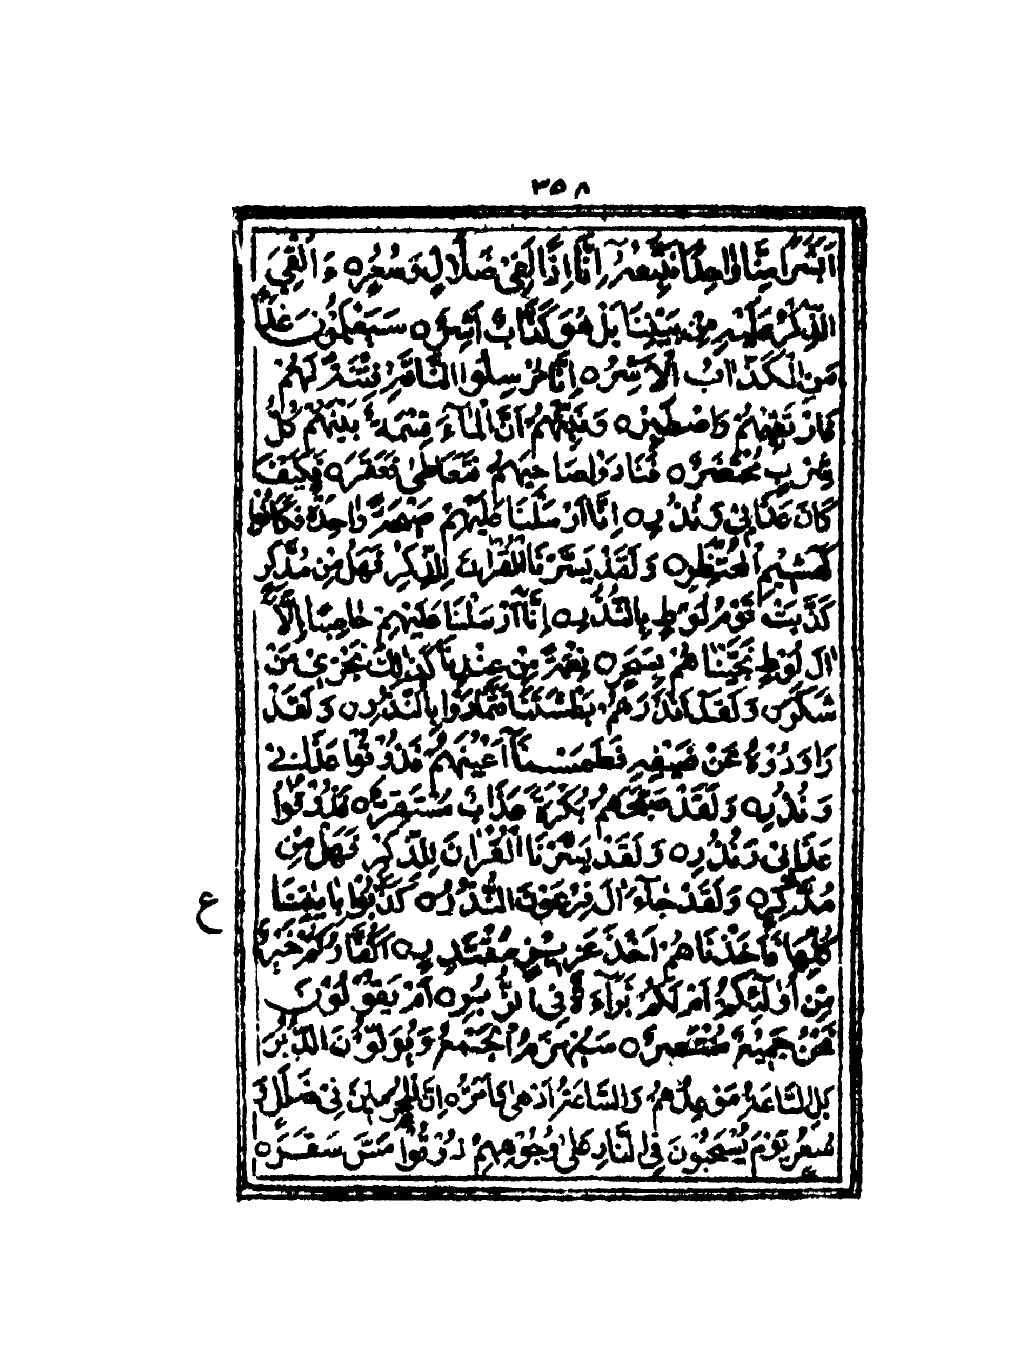 ٣٥٨
اَبَشَرًا مِّنَّا وَاحِدًا نَّتَّبِعُهٗ اِنَّآ اِذًا لَّفِیْ ضَلٰلٍ وَّسُعُرٍ ○ ءَ اُلْقِیَ
الذِّكْرُ عَلَیْهِ مِنْ بَیْنِنَا بَلْ هُوَ كَذَّابٌ اَشِرٌ ○ سَیَعْلَمُوْنَ غَدًا
مَنِ الْكَذَّابُ الْاَشِرُ ○ اِنَّا مُرْسِلُوا النَّاقَةِ فِتْنَةً لَّهُمْ
فَارْتَقِبْهُمْ وَاصْطَبِرْ ○ وَنَبِّئْهُمْ اَنَّ الْمَآءَ قِسْمَةٌ بَیْنَهُمْ كُلُّ
شِرْبٍ مُّحْتَضَرٌ ○ فَنَادَوْا صَاحِبَهُمْ فَتَعَاطٰی فَعَقَرَ ○ فَكَیْفَ
كَانَ عَذَابِیْ وَنُذُرِ ○ اِنَّآ اَرْسَلْنَا عَلَیْهِمْ صَیْحَةً وَّاحِدَةً فَكَانُوْا
كَهَشِیْمِ الْمُحْتَظِرِ ○ وَلَقَدْ یَسَّرْنَا الْقُرْاٰنَ لِلذِّكْرِ فَهَلْ مِنْ مُّدَّكِرٍ
كَذَّبَتْ قَوْمُ لُوْطٍ بِالنُّذُرِ ○ اِنَّآ اَرْسَلْنَا عَلَیْهِمْ حَاصِبًا اِلَّآ
اٰلَ لُوْطٍ نَجَّیْنٰهُمْ بِسَحَرٍ ○ نِّعْمَةً مِّنْ عِنْدِنَا كَذٰلِكَ نَجْزِیْ مَنْ
شَكَرَ ○ وَلَقَدْ اَنْذَرَهُمْ بَطْشَتَنَا فَتَمَارَوْا بِالنُّذُرِ ○ وَلَقَدْ
رَاوَدُوْهُ عَنْ ضَیْفِهٖ فَطَمَسْنَآ اَعْیُنَهُمْ فَذُوْقُوْا عَذَابِیْ
وَنُذُرِ ○ وَلَقَدْ صَبَّحَهُمْ بُكْرَةً عَذَابٌ مُّسْتَقِرٌّ ○ فَذُوْقُوْا
عَذَابِیْ وَنُذُرِ ○ وَلَقَدْ یَسَّرْنَا الْقُرْاٰنَ لِلذِّكْرِ فَهَلْ مِنْ
مُّدَّكِرٍ ○ وَلَقَدْ جَآءَ اٰلَ فِرْعَوْنَ النُّذُرُ ○ كَذَّبُوْا بِاٰیٰتِنَا
كُلِّهَا فَاَخَذْنٰهُمْ اَخْذَ عَزِیْزٍ مُّقْتَدِرٍ ○ اَكُفَّارُكُمْ خَیْرٌ
مِّنْ اُولٰٓئِكُمْ اَمْ لَكُمْ بَرَآءَةٌ فِی الزُّبُرِ ○ اَمْ یَقُوْلُوْنَ
نَحْنُ جَمِیْعٌ مُّنْتَصِرٌ ○ سَیُهْزَمُ الْجَمْعُ وَیُوَلُّوْنَ الدُّبُرَ
بَلِ السَّاعَةُ مَوْعِدُهُمْ وَالسَّاعَةُ اَدْهٰی وَاَمَرُّ ○ اِنَّ الْمُجْرِمِیْنَ فِیْ ضَلٰلٍ وَّ
سُعُرٍ یَوْمَ یُسْحَبُوْنَ فِی النَّارِ عَلٰی وُجُوْهِهِمْ ذُوْقُوْا مَسَّ سَقَرَ ○
ع